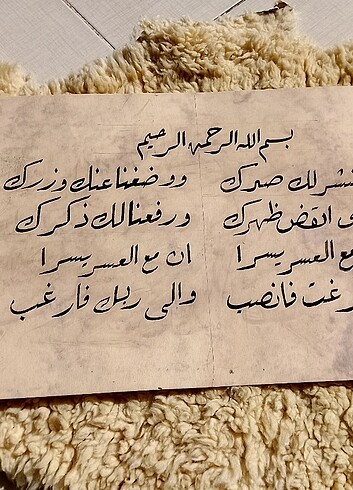 بسم الله الرحمن الرحيم
لك صدرك ووضعنا عنك وزرك
انقض ظهرك ورفعنا لك ذكرك
العسر يسرا ان مع العسر يسرا
فانصب والى ربك فارغب